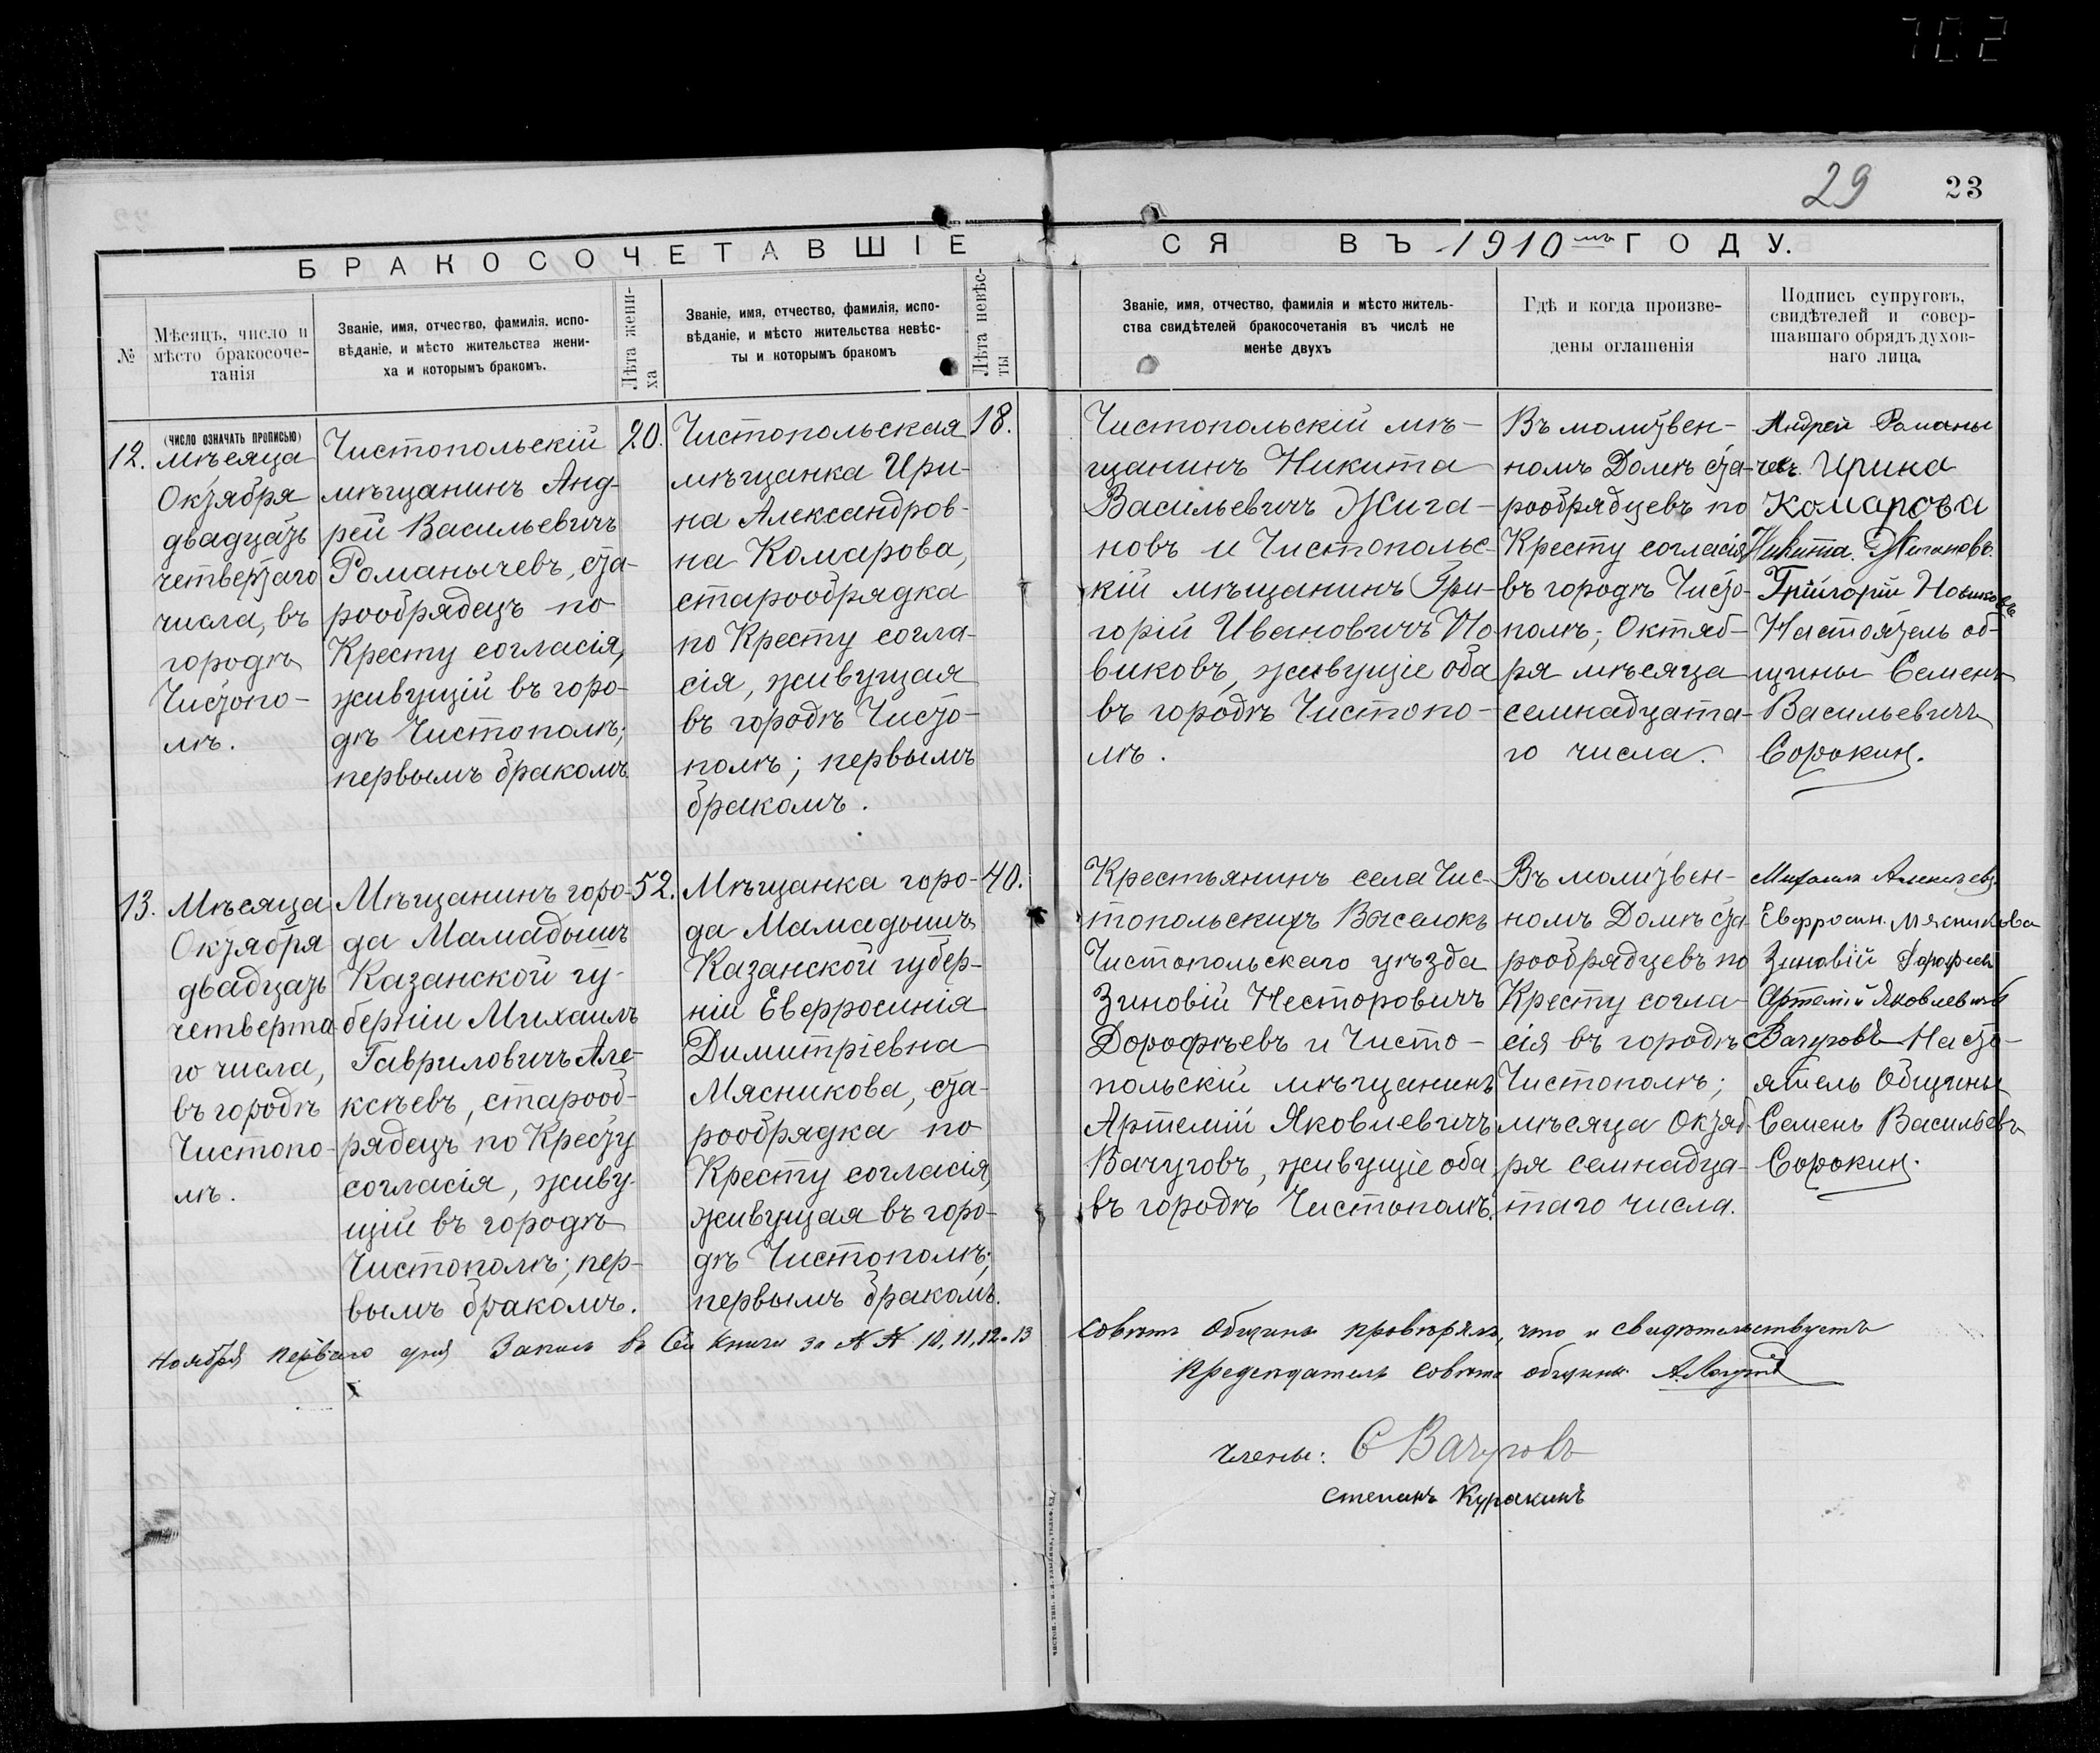 702
29 23
БРАКОСОЧЕТАВШІЕ
СЯ ВЪ 1910мъ ГОДУ.
№
Мѣсяцъ, число и
мѣсто бракосоче-
танія
Званіе, имя, отчество, фамилія, испо-
вѣданіе, и мѣсто жительства жени-
ха и которымъ бракомъ.
Лѣта жени-
ха
Званіе, имя, отчество, фамилія, испо-
вѣданіе, и мѣсто жительства невѣс-
ты и которымъ бракомъ
Лѣта невѣс-
ты
Званіе, имя, отчество, фамилія и мѣсто житель-
ства свидѣтелей бракосочетанія въ числѣ не
менѣе двухъ
Гдѣ и когда произве-
дены оглашенія
Подпись супруговъ,
свидѣтелей и совер-
шавшаго обрядъ духов-
наго лица.
(ЧИСЛО ОЗНАЧАТЬ ПРОПИСЬЮ)
12.
мѣсяца
Октября
двадцать
четвертаго
числа, въ
городѣ
Чистопо-
лѣ.
Чистопольскій
мѣщанинъ Анд-
рей Васильевичъ
Романычевъ, ста-
рообрядецъ по
Кресту согласія,
живущій въ горо-
дѣ Чистополѣ;
первымъ бракомъ
20.
Чистопольская
мѣщанка Ири-
на Александров-
на Комарова,
старообрядка
по Кресту согла-
сія, живущая
въ городѣ Чисто-
полѣ; первымъ
бракомъ.
18.
Чистопольскій мѣ-
щанинъ Никита
Васильевичъ Жига-
новъ и Чистопольс-
кій мѣщанинъ Гри-
горій Ивановичъ Но-
виковъ, живущіе оба
въ городѣ Чистопо-
лѣ.
Въ молитвен-
номъ Домѣ ста-
рообрядцевъ по
Кресту согласія
въ городѣ Чисто-
полѣ; Октяб-
ря мѣсяца
семнадцата-
го числа.
Андрей Романы
чевъ. Ирина
Комарова
Никита. Жигановъ.
Григорій Новиковъ
Настоятель об-
щины Семенъ
Васильевичъ
Сорокин.
13.
Мѣсяца
Октября
двадцать
четверта
го числа,
въ городѣ
Чистопо-
лѣ.
Мѣщанинъ горо-
да Мамадышъ
Казанской гу-
берніи Михаилъ
Гавриловичъ Але-
ксѣевъ, старооб-
рядецъ по Кресту
согласія, живу-
щій въ городѣ
Чистополѣ; пер-
вымъ бракомъ.
52.
Мѣщанка горо-
да Мамадышъ
Казанской губер-
ніи Еверросинія
Димитріевна
Мясникова, ста-
рообрядка по
Кресту согласія
живущая въ горо-
дѣ Чистополѣ;
первымъ бракомъ.
40.
Крестьянинъ села Чис-
топольскихъ Выселокъ
Чистопольскаго уѣзда
Зиновій Несторовичъ
Дорофѣевъ и Чисто-
польскій мѣщанинъ
Артемій Яковлевичъ
Вачуговъ, живущіе оба
въ городѣ Чистополѣ.
Въ молитвен-
номъ Домѣ ста
рообрядцевъ по
Кресту согла-
сія въ городѣ
Чистополѣ;
мѣсяца Октяб-
ря семнадца-
таго числа.
Михаилъ
Евфросин. Мясникова
Зиновій
Артемій Яковлевичъ
Вачуговъ Насто-
ятель Общины
Семенъ Васильевъ
Сорокин.
Ноября перваго дня Запись въ Сей Книги за №№ 10, 11, 12 и 13
Совѣтъ Общины провѣрялъ, что и свидѣтельствуетъ
Предсѣдатель Совѣта общины
Члены: С Вачуговъ
Степанъ Куракинъ